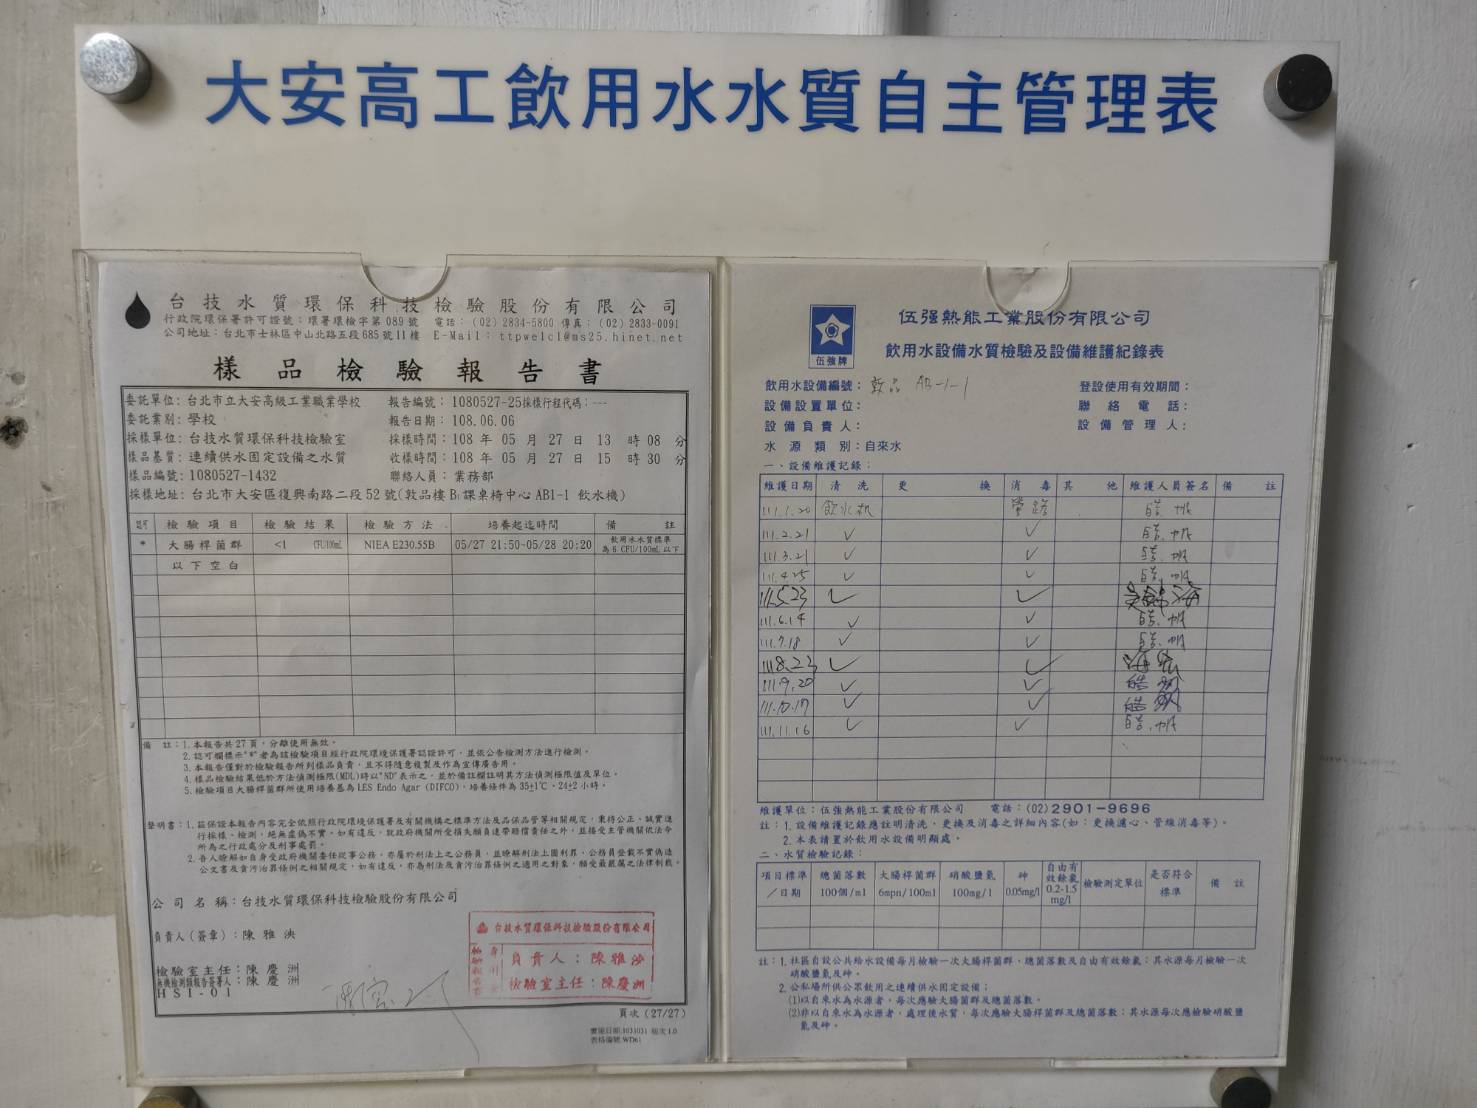 大安高工飲用水水質自主管理表
台技水質環保科技檢驗股份有限公司
行政院環保署許可證號：環署環檢字第089號 電話：(02)2834-5800 傳真：(02)2833-0091
公司地址：台北市士林區中山北路五段685號11樓 E-Mail：ttpwelcl@ms25.hinet.net
樣品檢驗報告書
委託單位：台北市立大安高級工業職業學校 報告編號：1080527-25採樣行程代碼：---
委託業別：學校 報告日期：108.06.06
採樣單位：台技水質環保科技檢驗室 採樣時間：108 年 05 月 27 日 13 時 08 分
樣品基質：連續供水固定設備之水質 收樣時間：108 年 05 月 27 日 15 時 30 分
樣品編號：1080527-1432 聯絡人員：業務部
採樣地址：台北市大安區復興南路二段52號(敦品樓B1課桌椅中心AB1-1 飲水機)
認可 檢驗項目 檢驗結果 檢驗方法 培養起迄時間 備註
* 大腸桿菌群 <1 CFU/100mL NIEA E230.55B 05/27 21:50~05/28 20:20 飲用水水質標準為6 CFU/100mL以下
以下空白
備 註：1.本報告共27頁，分離使用無效。
2.認可欄標示"*"者為該檢驗項目經行政院環境保護署認證許可，並依公告檢測方法進行檢測。
3.本報告僅對於檢驗報告所列樣品負責，且不得隨意複製及作為宣傳廣告用。
4.樣品檢驗結果低於方法偵測極限(MDL)時以"ND"表示之，並於備註欄註明其方法偵測極限值及單位。
5.檢驗項目大腸桿菌群所使用培養基為LES Endo Agar (DIFCO)，培養條件為35±1℃、24±2小時。
聲明書：1.茲保證本報告內容完全依照行政院環境保護署及有關機構之標準方法及品保品管等相關規定，秉持公正、誠實進
行採樣、檢測，絕無虛偽不實，如有違反，就政府機關所受損失願負連帶賠償責任之外，並接受主管機關依法令
所為之行政處分及刑事處罰。
2.吾人瞭解如自身受政府機關委任從事公務，亦屬於刑法上之公務員，並瞭解刑法上圖利罪、公務員登載不實偽造
公文書及貪污治罪條例之相關規定，如有違反，亦為刑法及貪污治罪條例之適用之對象，願受最嚴厲之法律制裁。
公司名稱：台技水質環保科技檢驗股份有限公司
負責人(簽章)：陳雅泱
檢驗室主任：陳慶洲
無機檢測類報告簽署人：陳慶洲
HSI-01
台技水質環保科技檢驗股份有限公司
負責人：陳雅泱
檢驗室主任：陳慶洲
頁次 (27/27)
實施日期:1031031 版次1.0
表格編號:WD61
伍強牌
伍强熱能工業股份有限公司
飲用水設備水質檢驗及設備維護紀錄表
飲用水設備編號：敦品 AB-1-1 登設使用有效期間：
設備設置單位： 聯絡電話：
設備負責人： 設備管理人：
水源類別：自來水
一、設備維護記錄：
維護日期 清洗 更換 消毒 其他 維護人員簽名 備註
111.1.20 飲水机 管路 皓帆
111.2.21 ✓ ✓ 皓帆
111.3.21 ✓ ✓ 皓帆
111.4.25 ✓ ✓ 皓帆
111.5.23 ✓ ✓
111.6.14 ✓ ✓ 皓帆
111.7.18 ✓ ✓ 皓帆
111.8.23 ✓ ✓
111.9.20 ✓ ✓ 皓帆
111.10.17 ✓ ✓ 皓帆
111.11.16 ✓ ✓ 皓帆
維護單位：伍強熱能工業股份有限公司 電話：(02)2901-9696
註：1.設備維護記錄應註明清洗、更換及消毒之詳細內容(如：更換濾心、管線消毒等)。
2.本表請置於飲用水設備明顯處。
二、水質檢驗記錄：
項目標準／日期 總菌落數100個/ml 大腸桿菌群6mpn/100ml 硝酸鹽氮100mg/l 砷0.05mg/l 自由有效餘氯0.2-1.5mg/l 檢驗測定單位 是否符合標準 備註
註：1.社區自設公共給水設備每月檢驗一次大腸桿菌群、總菌落數及自由有效餘氯；其水源每月檢驗一次
硝酸鹽氮及砷。
2.公私場所供公眾飲用之連續供水固定設備：
(1)以自來水為水源者，每次應驗大腸菌群及總菌落數。
(2)非以自來水為水源者，處理後水質，每次應驗大腸桿菌群及總菌落數；其水源每次應檢驗硝酸鹽
氮及砷。